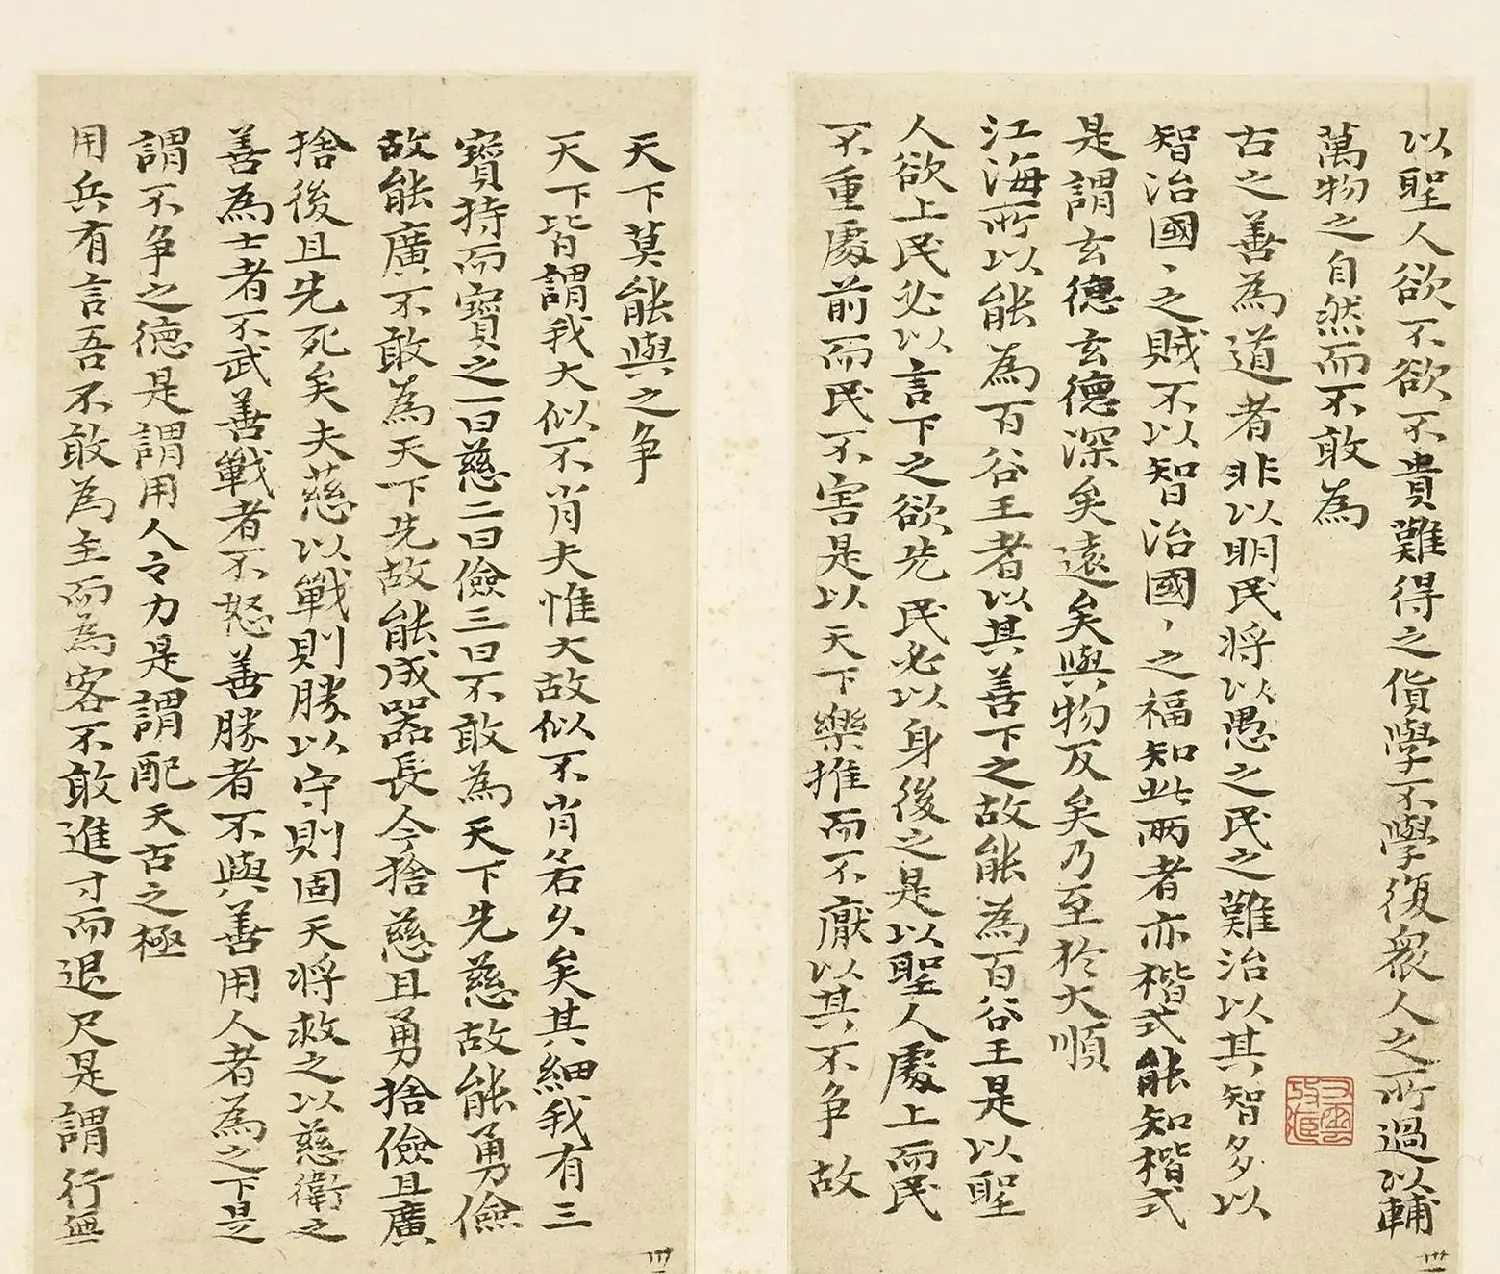 以聖人欲不欲不貴難得之貨學不學復衆人之所過以輔
萬物之自然而不敢為
古之善為道者非以明民将以愚之民之難治以其智多以
智治國〻之賊不以智治國〻之福知此兩者亦楷式能知楷式
是謂玄德玄德深矣遠矣與物反矣乃至於大順
江海所以能為百谷王者以其善下之故能為百谷王是以聖
人欲上民必以言下之欲先民必以身後之是以聖人處上而民
不重處前而民不害是以天下樂推而不厭以其不争故
天下莫能與之争
天下皆謂我大似不肖夫惟大故似不肖若久矣其細我有三
寶持而寶之一曰慈二曰儉三曰不敢為天下先慈故能勇儉
故能廣不敢為天下先故能成器長今捨慈且勇捨儉且廣
捨後且先死矣夫慈以戰則勝以守則固天将救之以慈衛之
善為士者不武善戰者不怒善勝者不與善用人者為之下是
謂不争之德是謂用人之力是謂配天古之極
用兵有言吾不敢為主而為客不敢進寸而退尺是謂行無